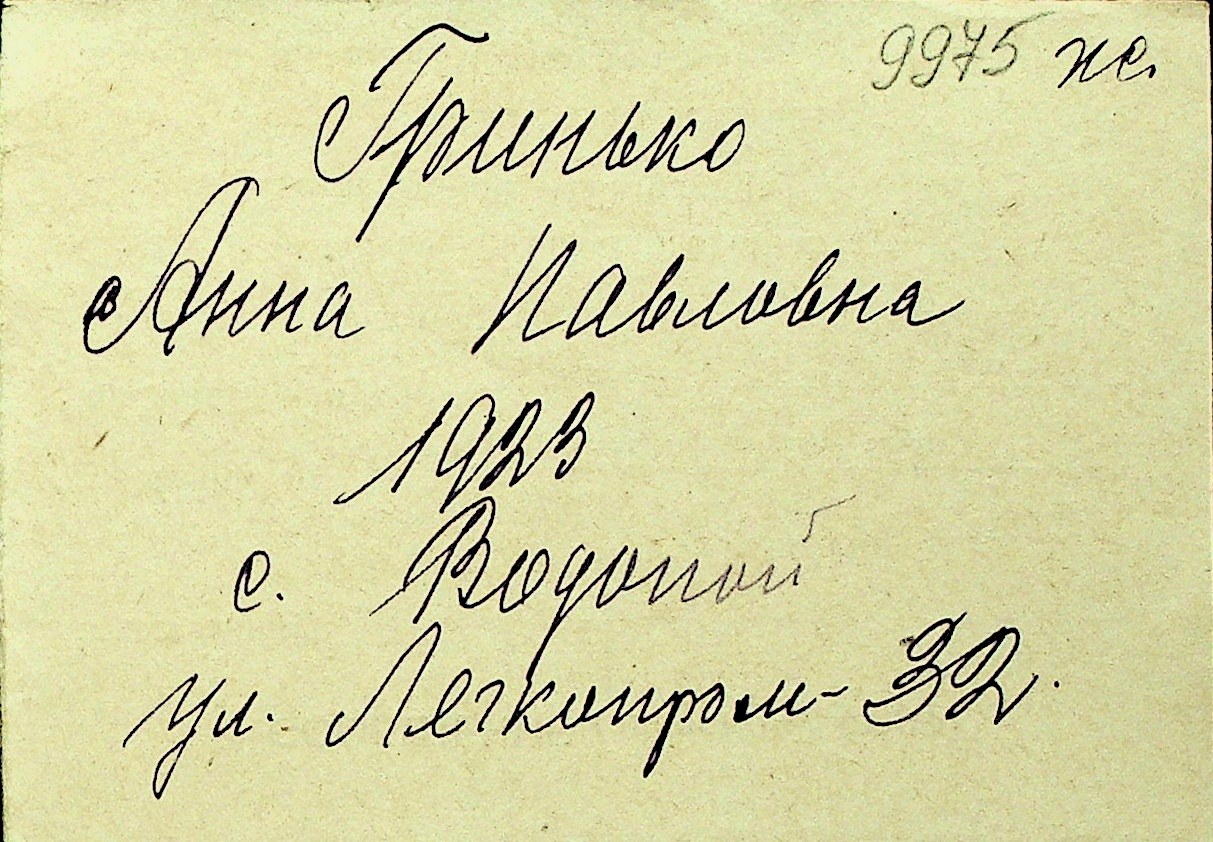 9975 нс.
Гринько
Анна Павловна
1923
с. Водопой
ул. Легкопром- 32.